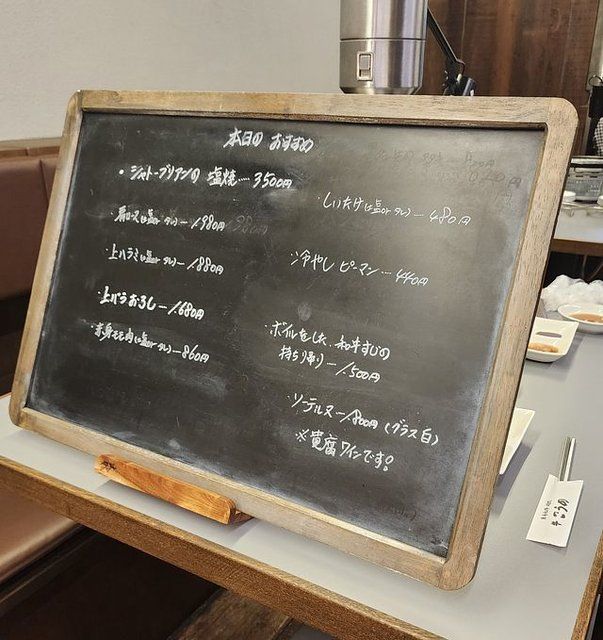 本日の おすすめ
・シャトーブリアンの 塩焼 … 3500円
肩ロース(塩or タレ) — 1,980円
上ハラミ(塩or タレ) — 1,880円
上バラおろし — 1,680円
赤身もも肉(塩or タレ) — 860円
しいたけ(塩or タレ) — 480円
冷やし ピーマン … 440円
ボイルをした、和牛すじの
持ち帰り — 1,500円
ソーテルヌ — 1,800円 (グラス白)
※貴腐ワインです!